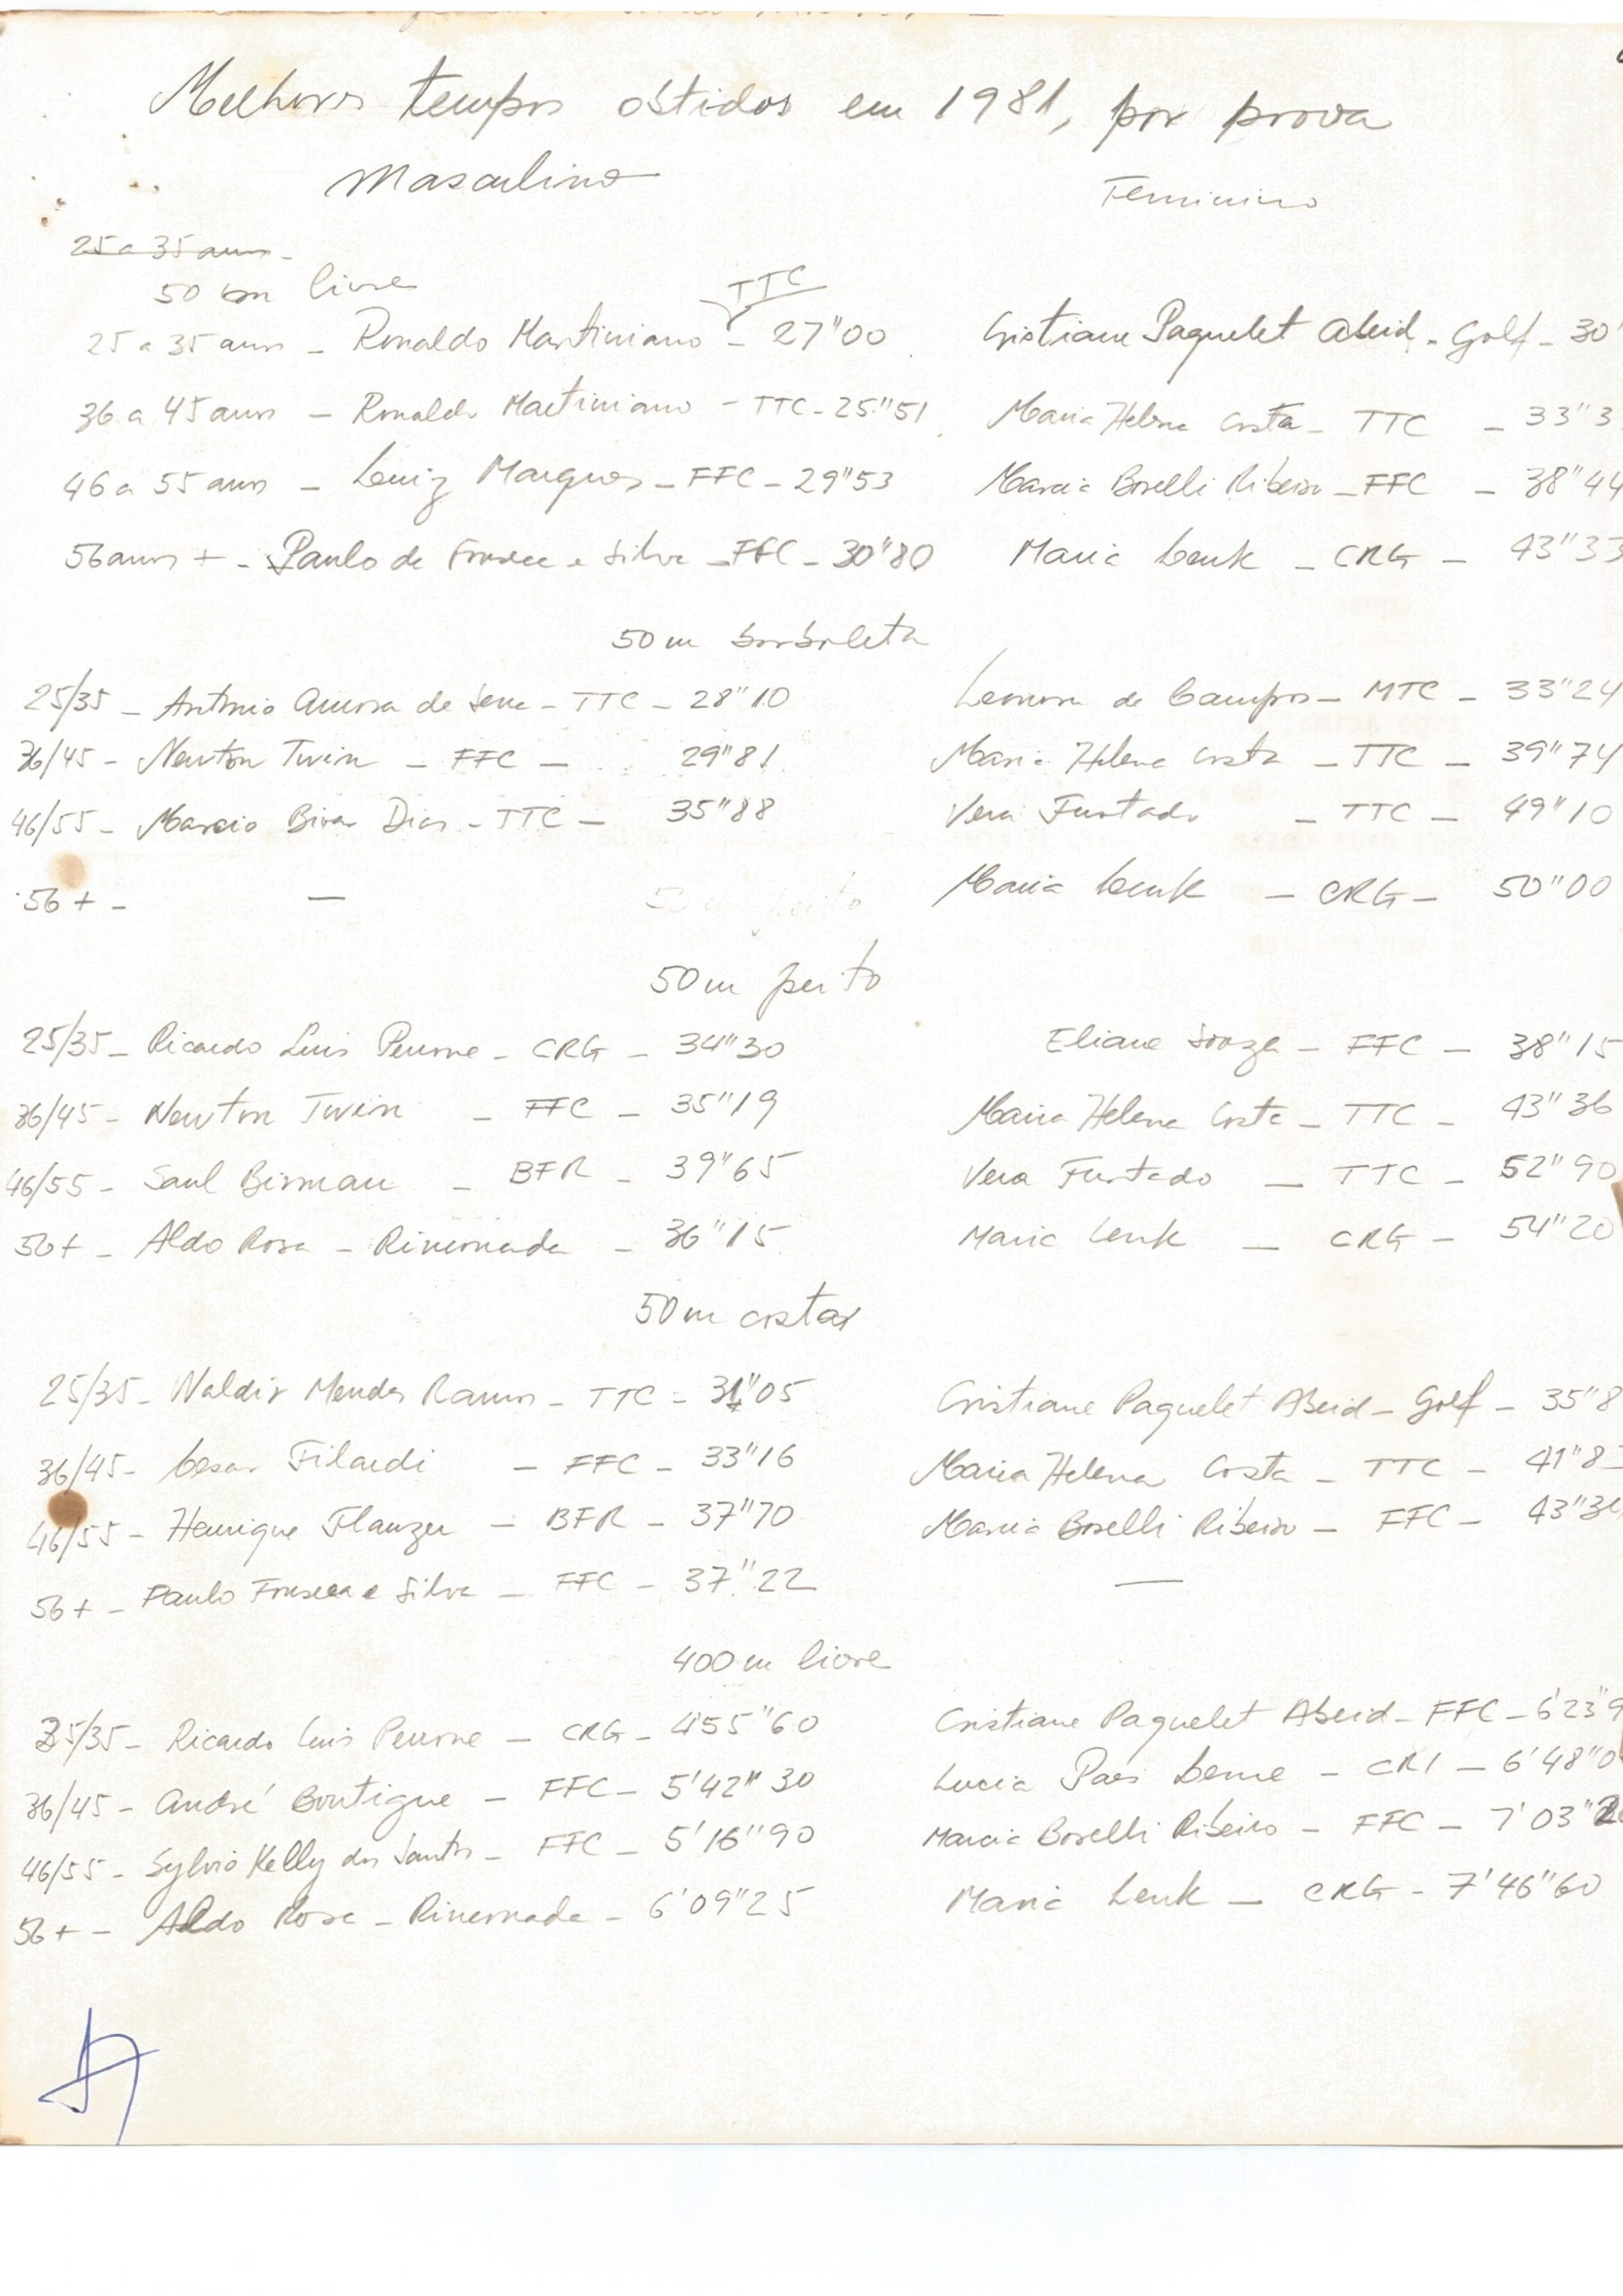 Melhores tempos obtidos em 1981, por prova
Masculino Feminino
25 a 35 anos -
50 m livre TTC
25 a 35 anos - Ronaldo Martiniano - 27"00 Cristiane Paquelet Abeid - Golf - 30"
36 a 45 anos - Ronaldo Martiniano - TTC - 25"51 Maria Helena Costa - TTC - 33"3
46 a 55 anos - Luiz Marques - FFC - 29"53 Marcia Borelli Ribeiro - FFC - 38"44
56 anos + - Paulo da Fonseca e Silva - FFC - 30"80 Maria Lenk - CRG - 43"33
50 m borboleta
25/35 - Antonio de Sena - TTC - 28"10 de Campos - MTC - 33"24
36/45 - Newton Twin - FFC - 29"81 Maria Helena Costa - TTC - 39"74
46/55 - Marcio Dias - TTC - 35"88 Vera Furtado - TTC - 49"10
56 + - - Maria Lenk - CRG - 50"00
50 m peito
25/35 - Ricardo Luis Perrone - CRG - 34"30 Eliane Souza - FFC - 38"15
36/45 - Newton Twin - FFC - 35"19 Maria Helena Costa - TTC - 43"36
46/55 - Saul Birman - BFR - 39"65 Vera Furtado - TTC - 52"90
56+ - Aldo Rosa - - 36"15 Maria Lenk - CRG - 54"20
50 m costas
25/35 - Waldir Mendes Ramos - TTC - 31"05 Cristiane Paquelet Abeid - Golf - 35"8
36/45 - Cesar Filardi - FFC - 33"16 Maria Helena Costa - TTC - 41"8
46/55 - Henrique Flanzer - BFR - 37"70 Marcia Borelli Ribeiro - FFC - 43"3
56+ - Paulo Fonseca e Silva - FFC - 37"22 -
400 m livre
25/35 - Ricardo Luis Perrone - CRG - 4'55"60 Cristiane Paquelet Abeid - FFC - 6'23"9
36/45 - André Boutigue - FFC - 5'42"30 Lucia Paes Leme - CRI - 6'48"0
46/55 - Sylvio Kelly dos Santos - FFC - 5'16"90 Marcia Borelli Ribeiro - FFC - 7'03"2
56+ - Aldo Rosa - - 6'09"25 Maria Lenk - CRG - 7'46"60